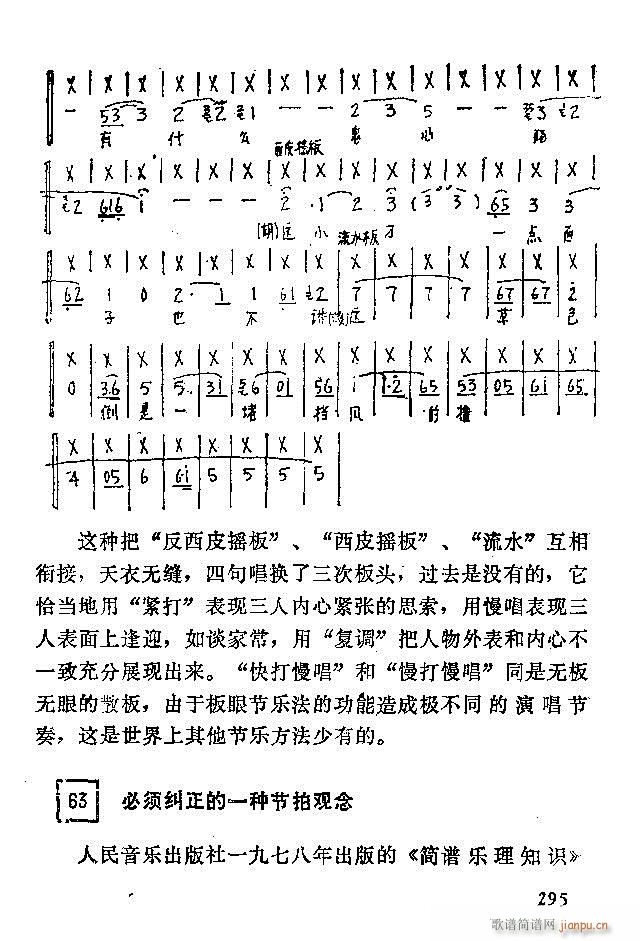 X X X X X X X X X X X X X X X
一 53 3 2 2 1 一 一 2 3 5 一 3 2
有 什 么
西皮摇板
X X X X X X X X X X X X X X X
2 616 i 一 一 一 2 · 1 2 3 (3 3) 65 3 3
(胡)这 小 才 一 点 面
流水板
X X X X X X X X X X X X X X X
62 1 0 2 · 1 1 61 2 7 7 7 7 67 67 2
子 也 不 讲 这 草 包
X X X X X X X X X X X X X X X
0 3·6 5 5· 31 6 01 56 1 1·2 65 53 05 61 65
倒 是 一 堵 挡 风 的 墙
X X X X X X X X
4 05 6 61 5 5 5 5
这种把“反西皮摇板”、“西皮摇板”、“流水”互相
衔接，天衣无缝，四句唱换了三次板头，过去是没有的，它
恰当地用“紧打”表现三人内心紧张的思索，用慢唱表现三
人表面上逢迎，如谈家常，用“复调”把人物外表和内心不
一致充分展现出来。“快打慢唱”和“慢打慢唱”同是无板
无眼的散板，由于板眼节乐法的功能造成极不同的演唱节
奏，这是世界上其他节乐方法少有的。
63 必须纠正的一种节拍观念
人民音乐出版社一九七八年出版的《简谱乐理知识》
295
歌谱简谱网
jianpu.cn